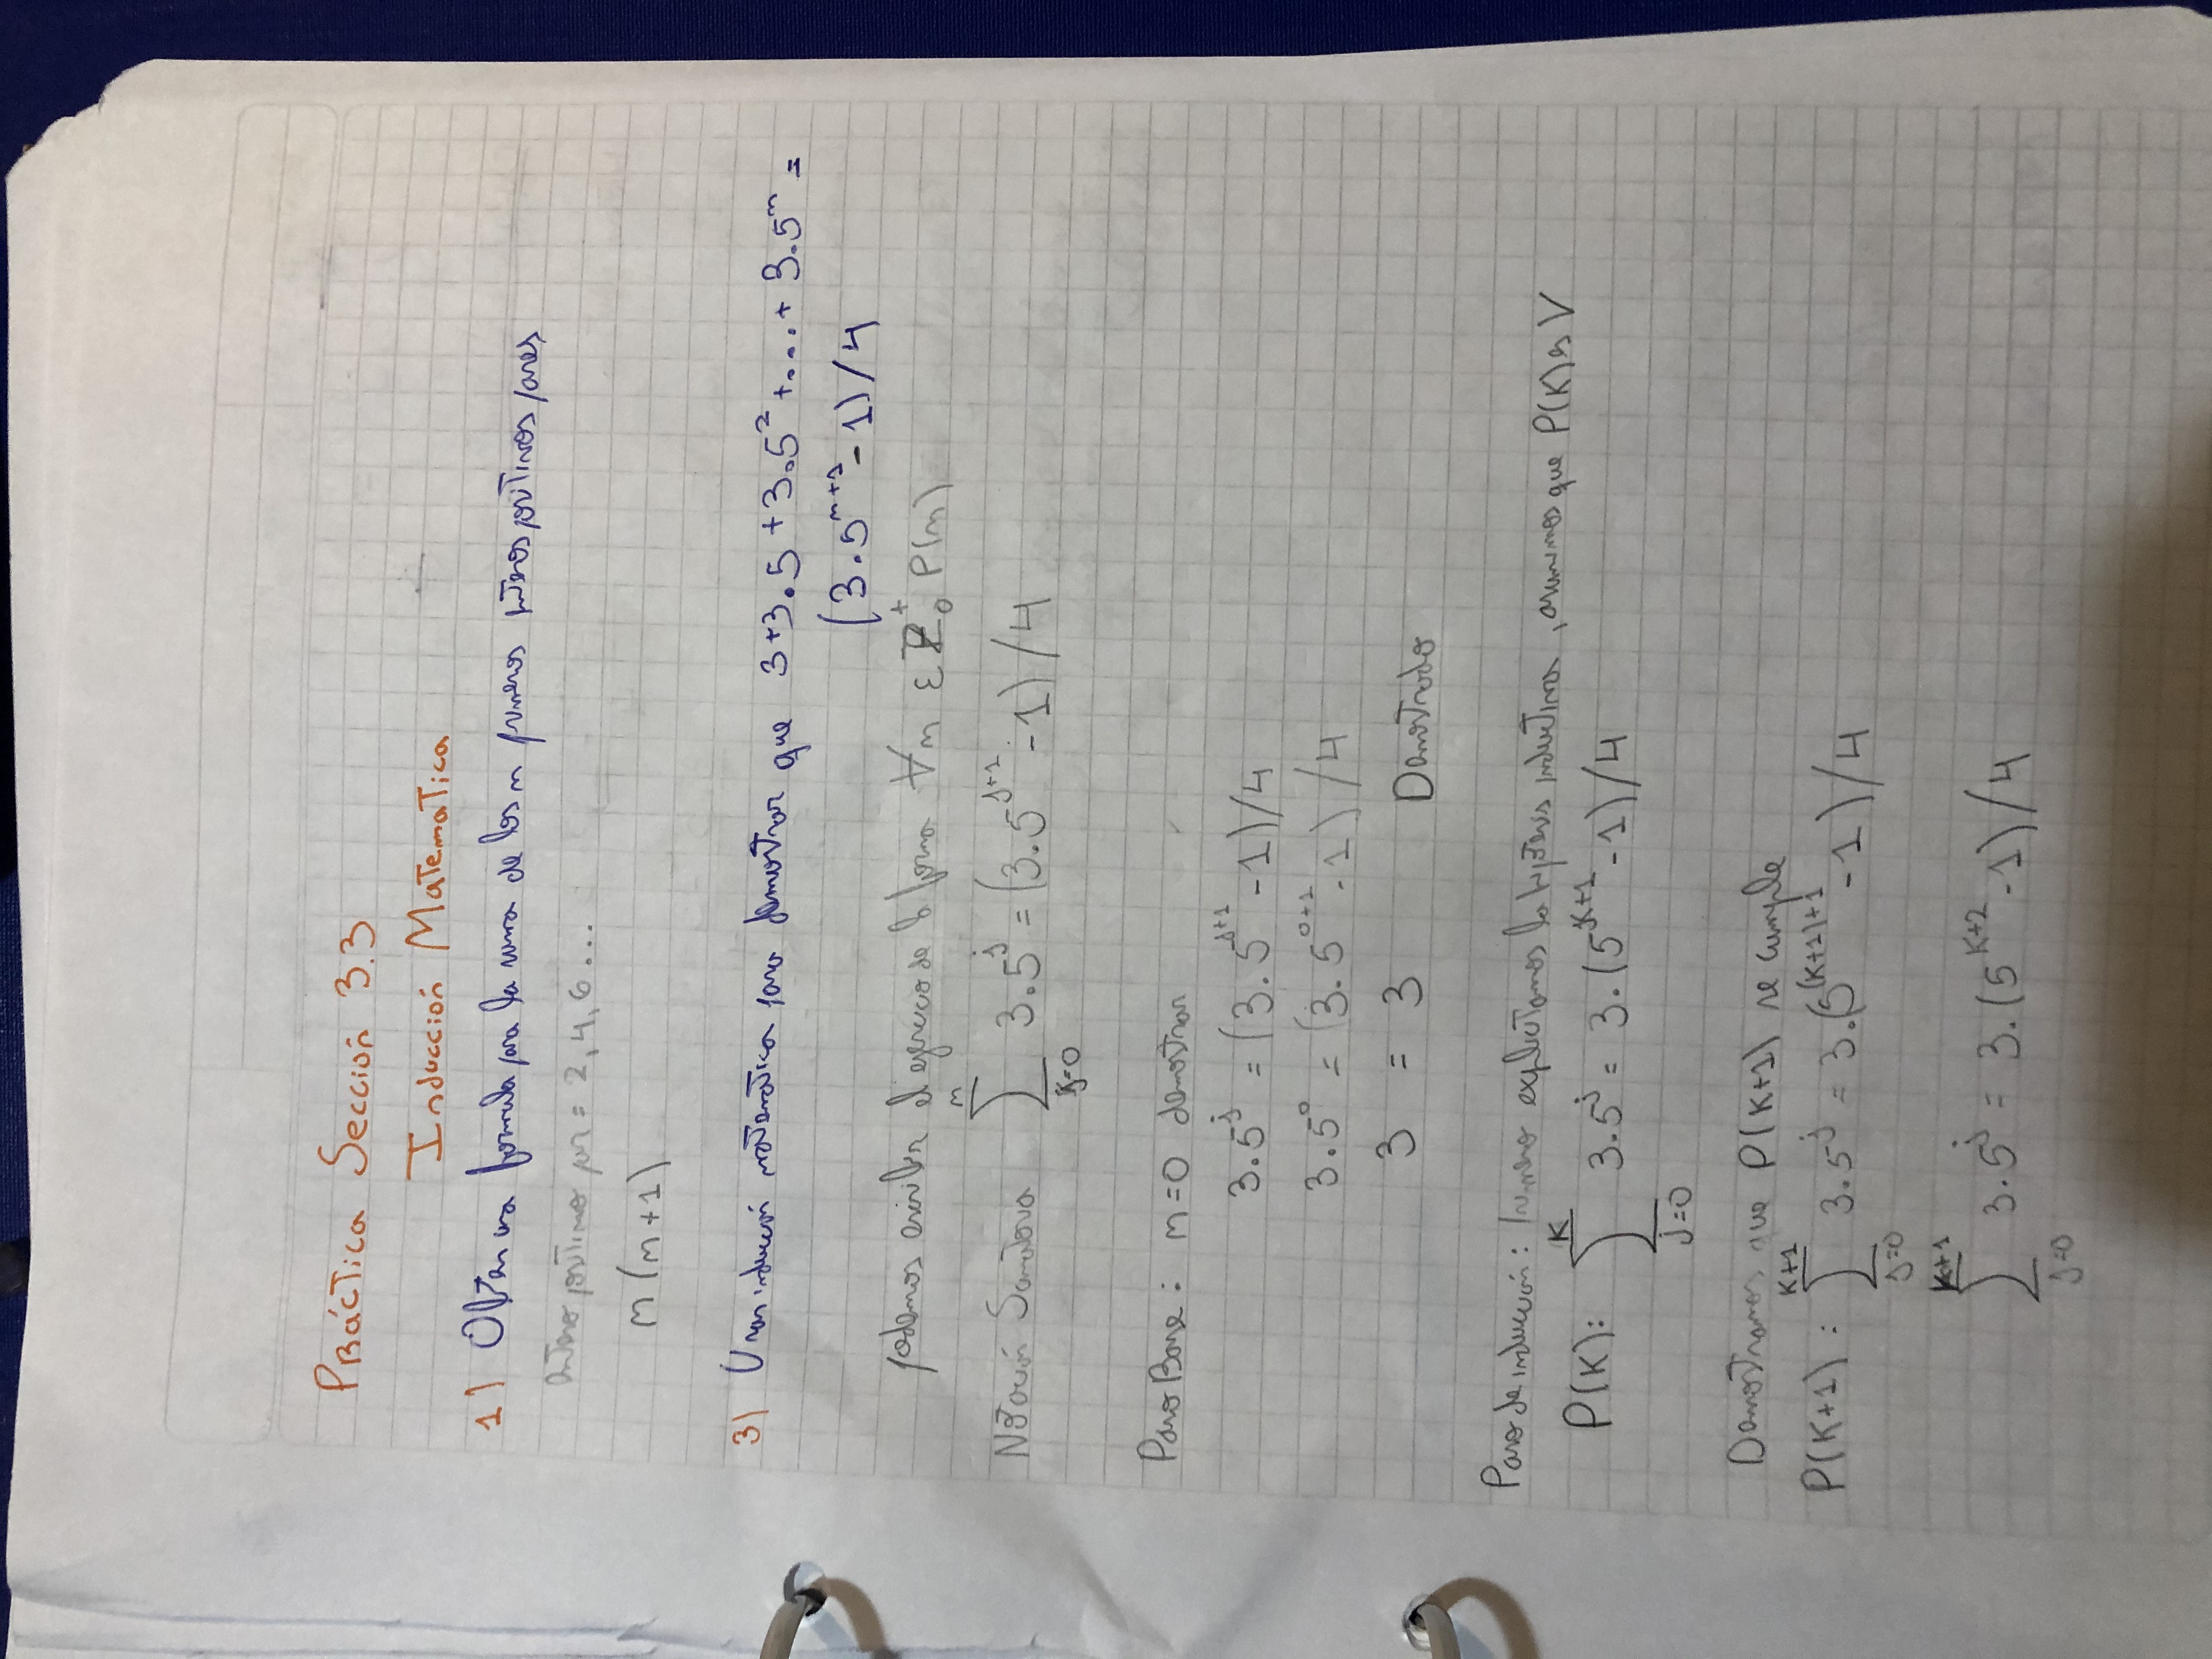 Práctica Sección 3.3
Inducción Matematica
1) Obten una formula para la suma de los n primeros enteros positivos pares
entero positivo par = 2, 4, 6 ...
n(n+1)
3) Usar inducción matemática para demostrar que 3+3.5+3.5²+....+ 3.5ⁿ =
(3.5ⁿ⁺¹-1)/4
podemos escribir el ejercicio de la forma ∀n ε Z⁺₀ P(n)
n
Notación Sumatoria ∑ 3.5ʲ = (3.5ʲ⁺¹-1)/4
j=0
Paso Base: n=0 demostrar
3.5ʲ = (3.5ʲ⁺¹-1)/4
3.5⁰ = (3.5⁰⁺¹-1)/4
3 = 3 Demostrado
Paso de inducción: primero explicitamos la hipótesis inductiva, asumimos que P(K) es V
K
P(K): ∑ 3.5ʲ = 3.(5ᴷ⁺¹-1)/4
j=0
Demostramos que P(K+1) se cumple
K+1
P(K+1): ∑ 3.5ʲ = 3.(5⁽ᴷ⁺¹⁾⁺¹-1)/4
j=0
K+1
∑ 3.5ʲ = 3.(5ᴷ⁺²-1)/4
j=0